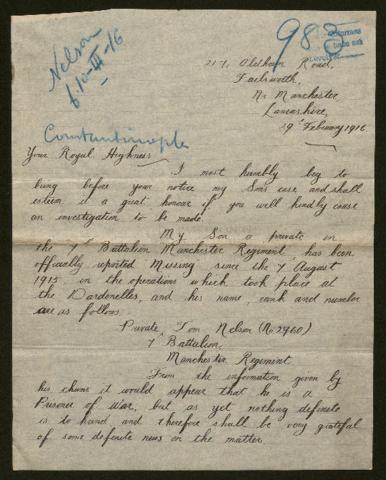 Nelson
6.10-III-16
983
Constantinople
217, Oldham Road,
Failsworth,
Nr Manchester
Lancashire,
29th February 1916.
Your Royal Highness
I most humbly beg to
bring before your notice my Son's case, and shall
esteem it a great honour if you will kindly cause
an investigation to be made.
My Son a private in
the 7th Battalion Manchester Regiment, has been
officially reported Missing since the 7 August
1915 in the operations which took place at
the Dardenelles, and his name, rank and number
are as follows.
Private Tom Nelson (No 2960)
7th Battalion,
Manchester Regiment
From the information given by
his chums it would appear that he is a
Prisoner of War, but as yet nothing definite
is to hand and therefore shall be very grateful
of some definite news on the matter